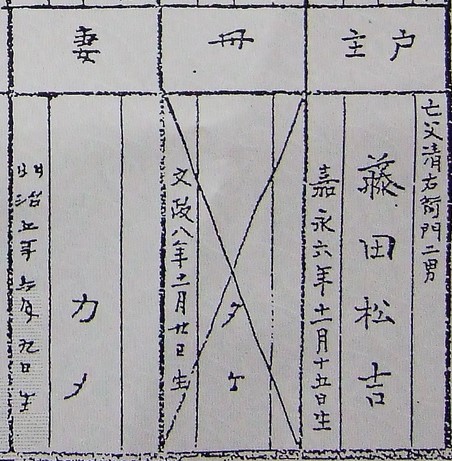 戸主
亡父清右衛門二男
藤田松吉
嘉永六年十二月十五日生
母
タケ
文政八年十二月廿日生
妻
カメ
明治五年六月九日生